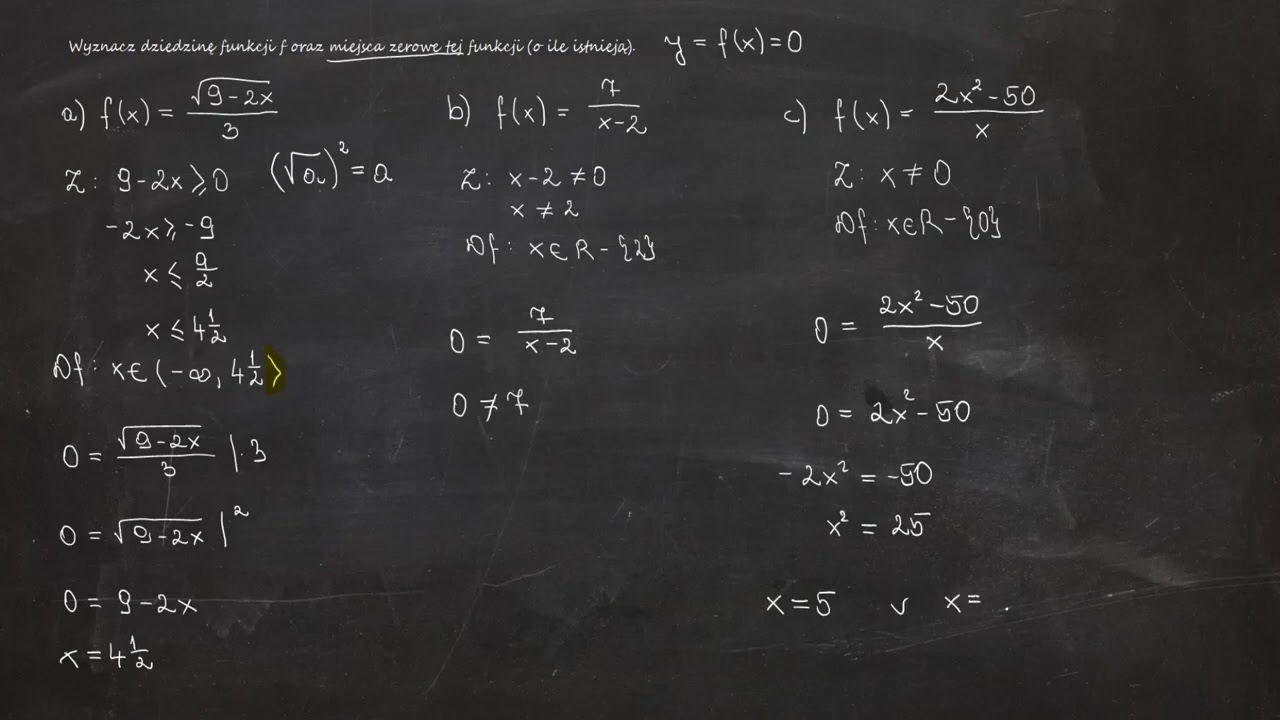 Wyznacz dziedzinę funkcji f oraz miejsca zerowe tej funkcji (o ile istnieją). y = f(x) = 0
a) f(x) = √(9-2x)/3
Z: 9-2x ⩾ 0 (√a)² = a
-2x ⩾ -9
x ⩽ 9/2
x ⩽ 4 1/2
Df: x∈(-∞, 4 1/2⟩
0 = √(9-2x)/3 |·3
0 = √(9-2x) |²
0 = 9-2x
x = 4 1/2
b) f(x) = 7/(x-2)
Z: x-2 ≠ 0
x ≠ 2
Df: x∈R-{2}
0 = 7/(x-2)
0 ≠ 7
c) f(x) = (2x²-50)/x
Z: x ≠ 0
Df: x∈R-{0}
0 = (2x²-50)/x
0 = 2x²-50
-2x² = -50
x² = 25
x = 5 ∨ x =